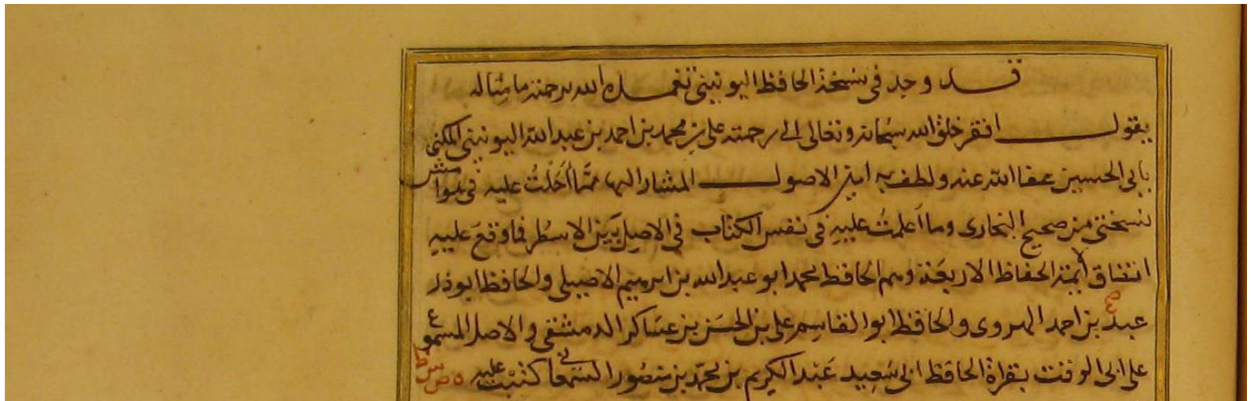 قد وجد في نسخة الحافظ اليونيني تغمده الله برحمته ما مثاله
يقول افقر خلق الله سبحانه وتعالى الى رحمته علي بن محمد بن احمد بن عبد الله اليونيني المكنى
بابي الحسين عفا الله عنه ولطف به الاصول المشار اليها مما أحلت عليه في هوامش
نسختي من صحيح البخاري وما أعلمت عليه في نفس الكتاب في الاصل بين الاسطر فما وقع عليه
اتفاق أيمة الحفاظ الاربعة وهم الحافظ محمد ابو عبد الله بن ابرهيم الاصيلي والحافظ ابو ذر
عبد بن احمد الهروى والحافظ ابو القاسم علي بن الحسن بن عساكر الدمشقي والاصل المسموع
على ابي الوقت بقراة الحافظ ابي سعيد عبد الكريم بن محمد بن منصور السمعاني كتبت عليه ه ص س ط